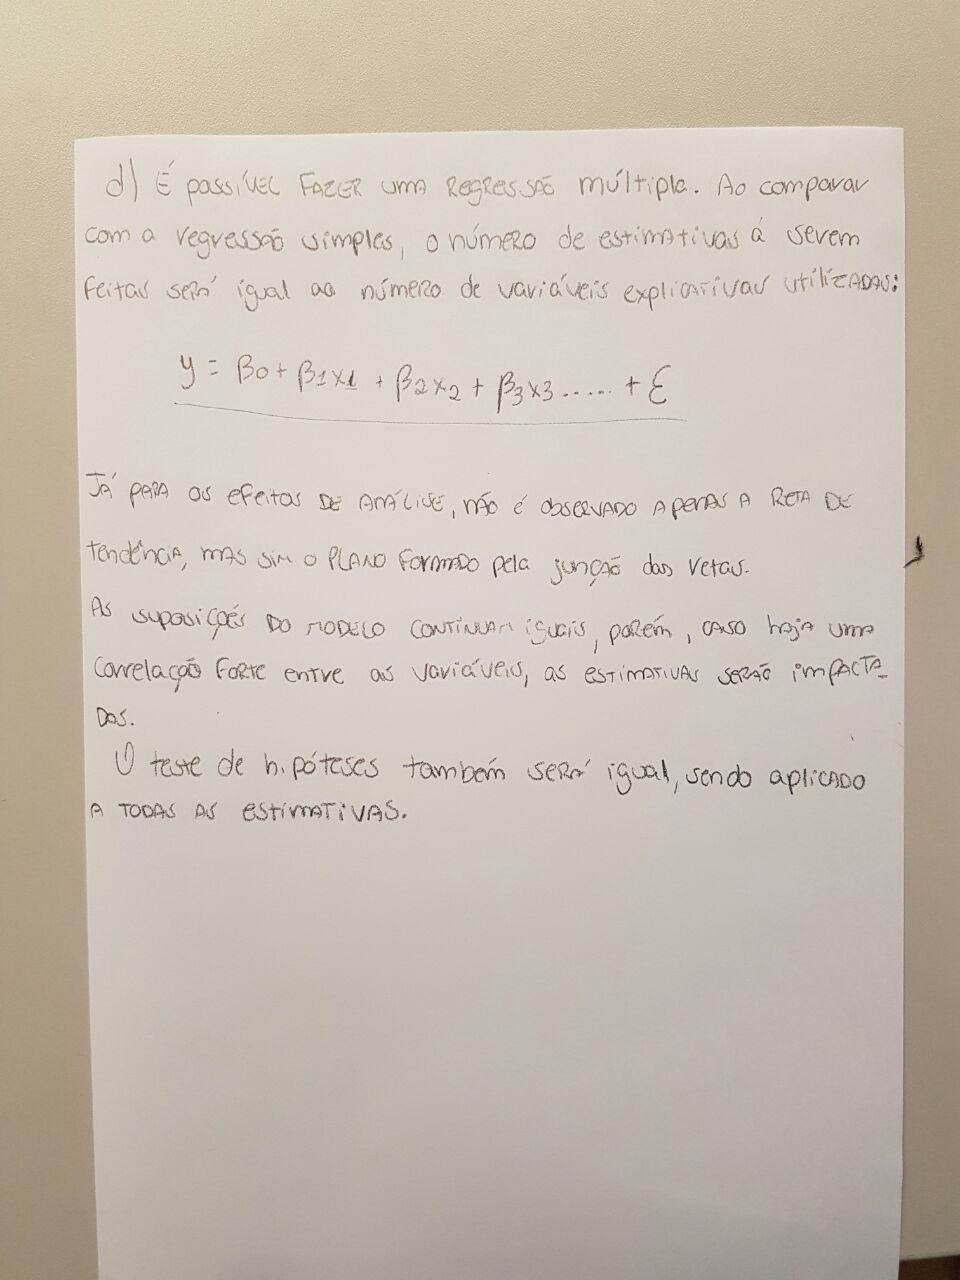 d) É possível fazer uma regressão múltipla. Ao comparar
com a regressão simples, o número de estimativas á serem
feitas será igual ao número de variáveis explicativas utilizadas:
y = β0 + β1x1 + β2x2 + β3x3 ...... + ε
Já para os efeitos de análise, não é observado apenas a reta de
tendência, mas sim o plano formado pela junção das retas.
As suposições do modelo continuam iguais, porém, caso haja uma
correlação forte entre as variáveis, as estimativas serão impacta-
das.
O teste de hipóteses também será igual, sendo aplicado
a todas as estimativas.